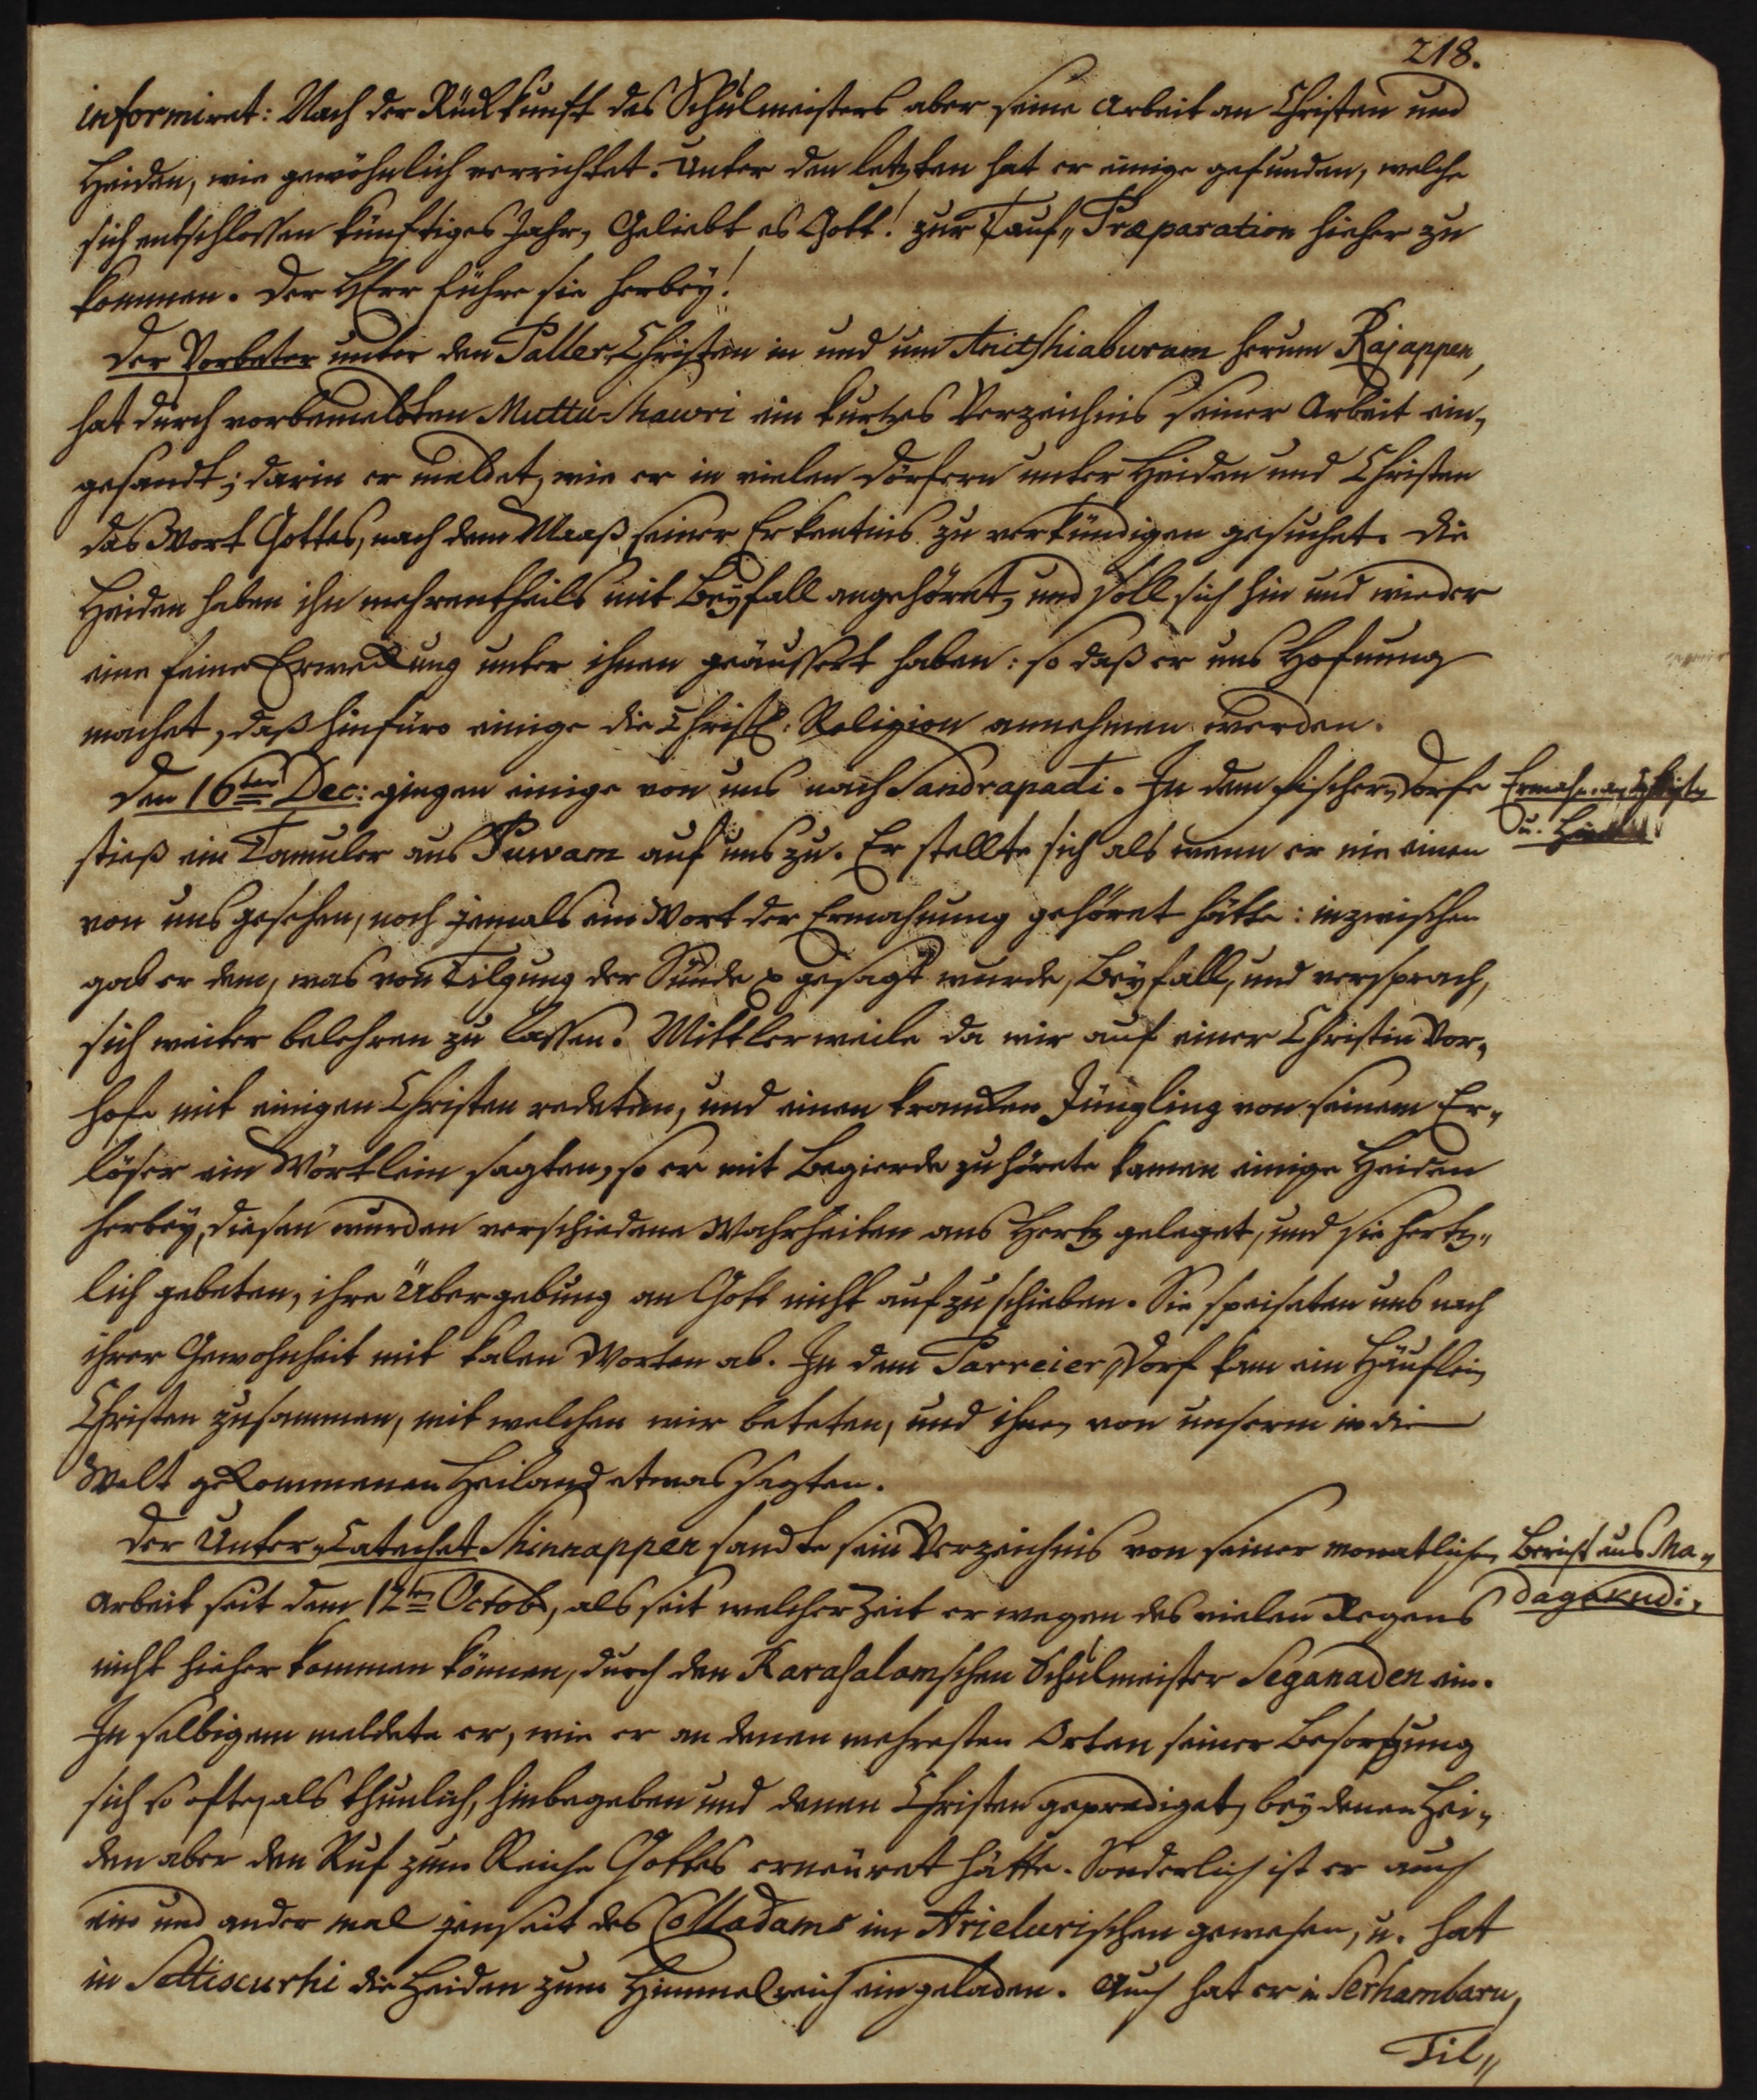 218.
informiret: Nach der Rückkunft des Schulmeisters aber seine Arbeit an Christen und
Heiden, wie gewöhnlich verrichtet. Unter den letzten hat er einige gefunden, welche
sich entschlossen künftiges Jahr, Geliebt es Gott! zur Tauf„Præparation hieher zu
kommen. Der HErr führe sie herbey!
Der Vorbeter unter den Paller„Christen in und um Anitshiaburam herum Rajappen,
hat durch vorbemeldten Muttu-Shawri ein kurtzes Verzeichnis seiner Arbeit ein„
gesandt; darin er meldet, wie er in vielen Dörfern unter Heiden und Christen
das Wort Gottes, nach dem Maaß seiner Erkentnis zu verkündigen gesuchet. Die
Heiden haben ihn mehrentheils mit Beyfall angehöret, und soll sich hin und wieder
eine feine Erweckung unter ihnen geäussert haben: so daß er uns Hofnung
machet, daß hinfüro einige die Christl: Religion annehmen werden.
Den 16ten Dec: gingen einige von uns nach Sandrapadi. In dem Fischer„Dorfe
Ermahn. an Christen
u. Heiden
stieß ein Tamuler aus Puwam auf uns zu. Er stellte sich als wenn er nie einen
von uns gesehen, noch jemals ein Wort der Ermahnung gehöret hätte: inzwischen
gab er dem, was von Tilgung der Sünde gesagt wurde, Beyfall, und versprach,
sich weiter belehren zu lassen. Mittlerweile da wir auf einer Christin Vor„
hofe mit einigen Christen redeten, und einen krancken Jüngling von seinem Er„
löser ein Wörtlein sagten, so er mit Begierde zuhörete kamen einige Heiden
herbey, diesen wurden verschiedene Wahrheiten ans Hertz geleget, und sie hertz„
lich gebeten, ihre Übergebung an Gott nicht aufzuschieben. Sie speiseten uns nach
ihrer Gewohnheit mit kalen Worten ab. In dem Parreier„Dorf kam ein Häuflein
Christen zusammen, mit welchen wir beteten, und ihnen von unserm in die
Welt gekommenen Heiland etwas sagten.
Der Unter„Catechet Shinnappen sandte sein Verzeichnis von seiner monatlichen
Bericht aus Ma„
dagakudi.
Arbeit seit dem 12ten Octob, als seit welcher Zeit er wegen des vielen Regens
nicht hieher kommen können, durch den Karasalamschen Schulmeister Seganaden ein.
In selbigem meldete er, wie er an denen mehresten Orten seiner Besorgung
sich so ofte, als thunlich, hinbegeben und denen Christen geprediget, bey denen Hei„
den aber den Ruf zum Reiche Gottes erneuret hätte. Sonderlich ist er auch
ein und ander mal jenseit des Colladams im Arielurischen gewesen, u. hat
in Settiscurhi die Heiden zum Himmelreich eingeladen. Auch hat er in Serhambaru,
Til„